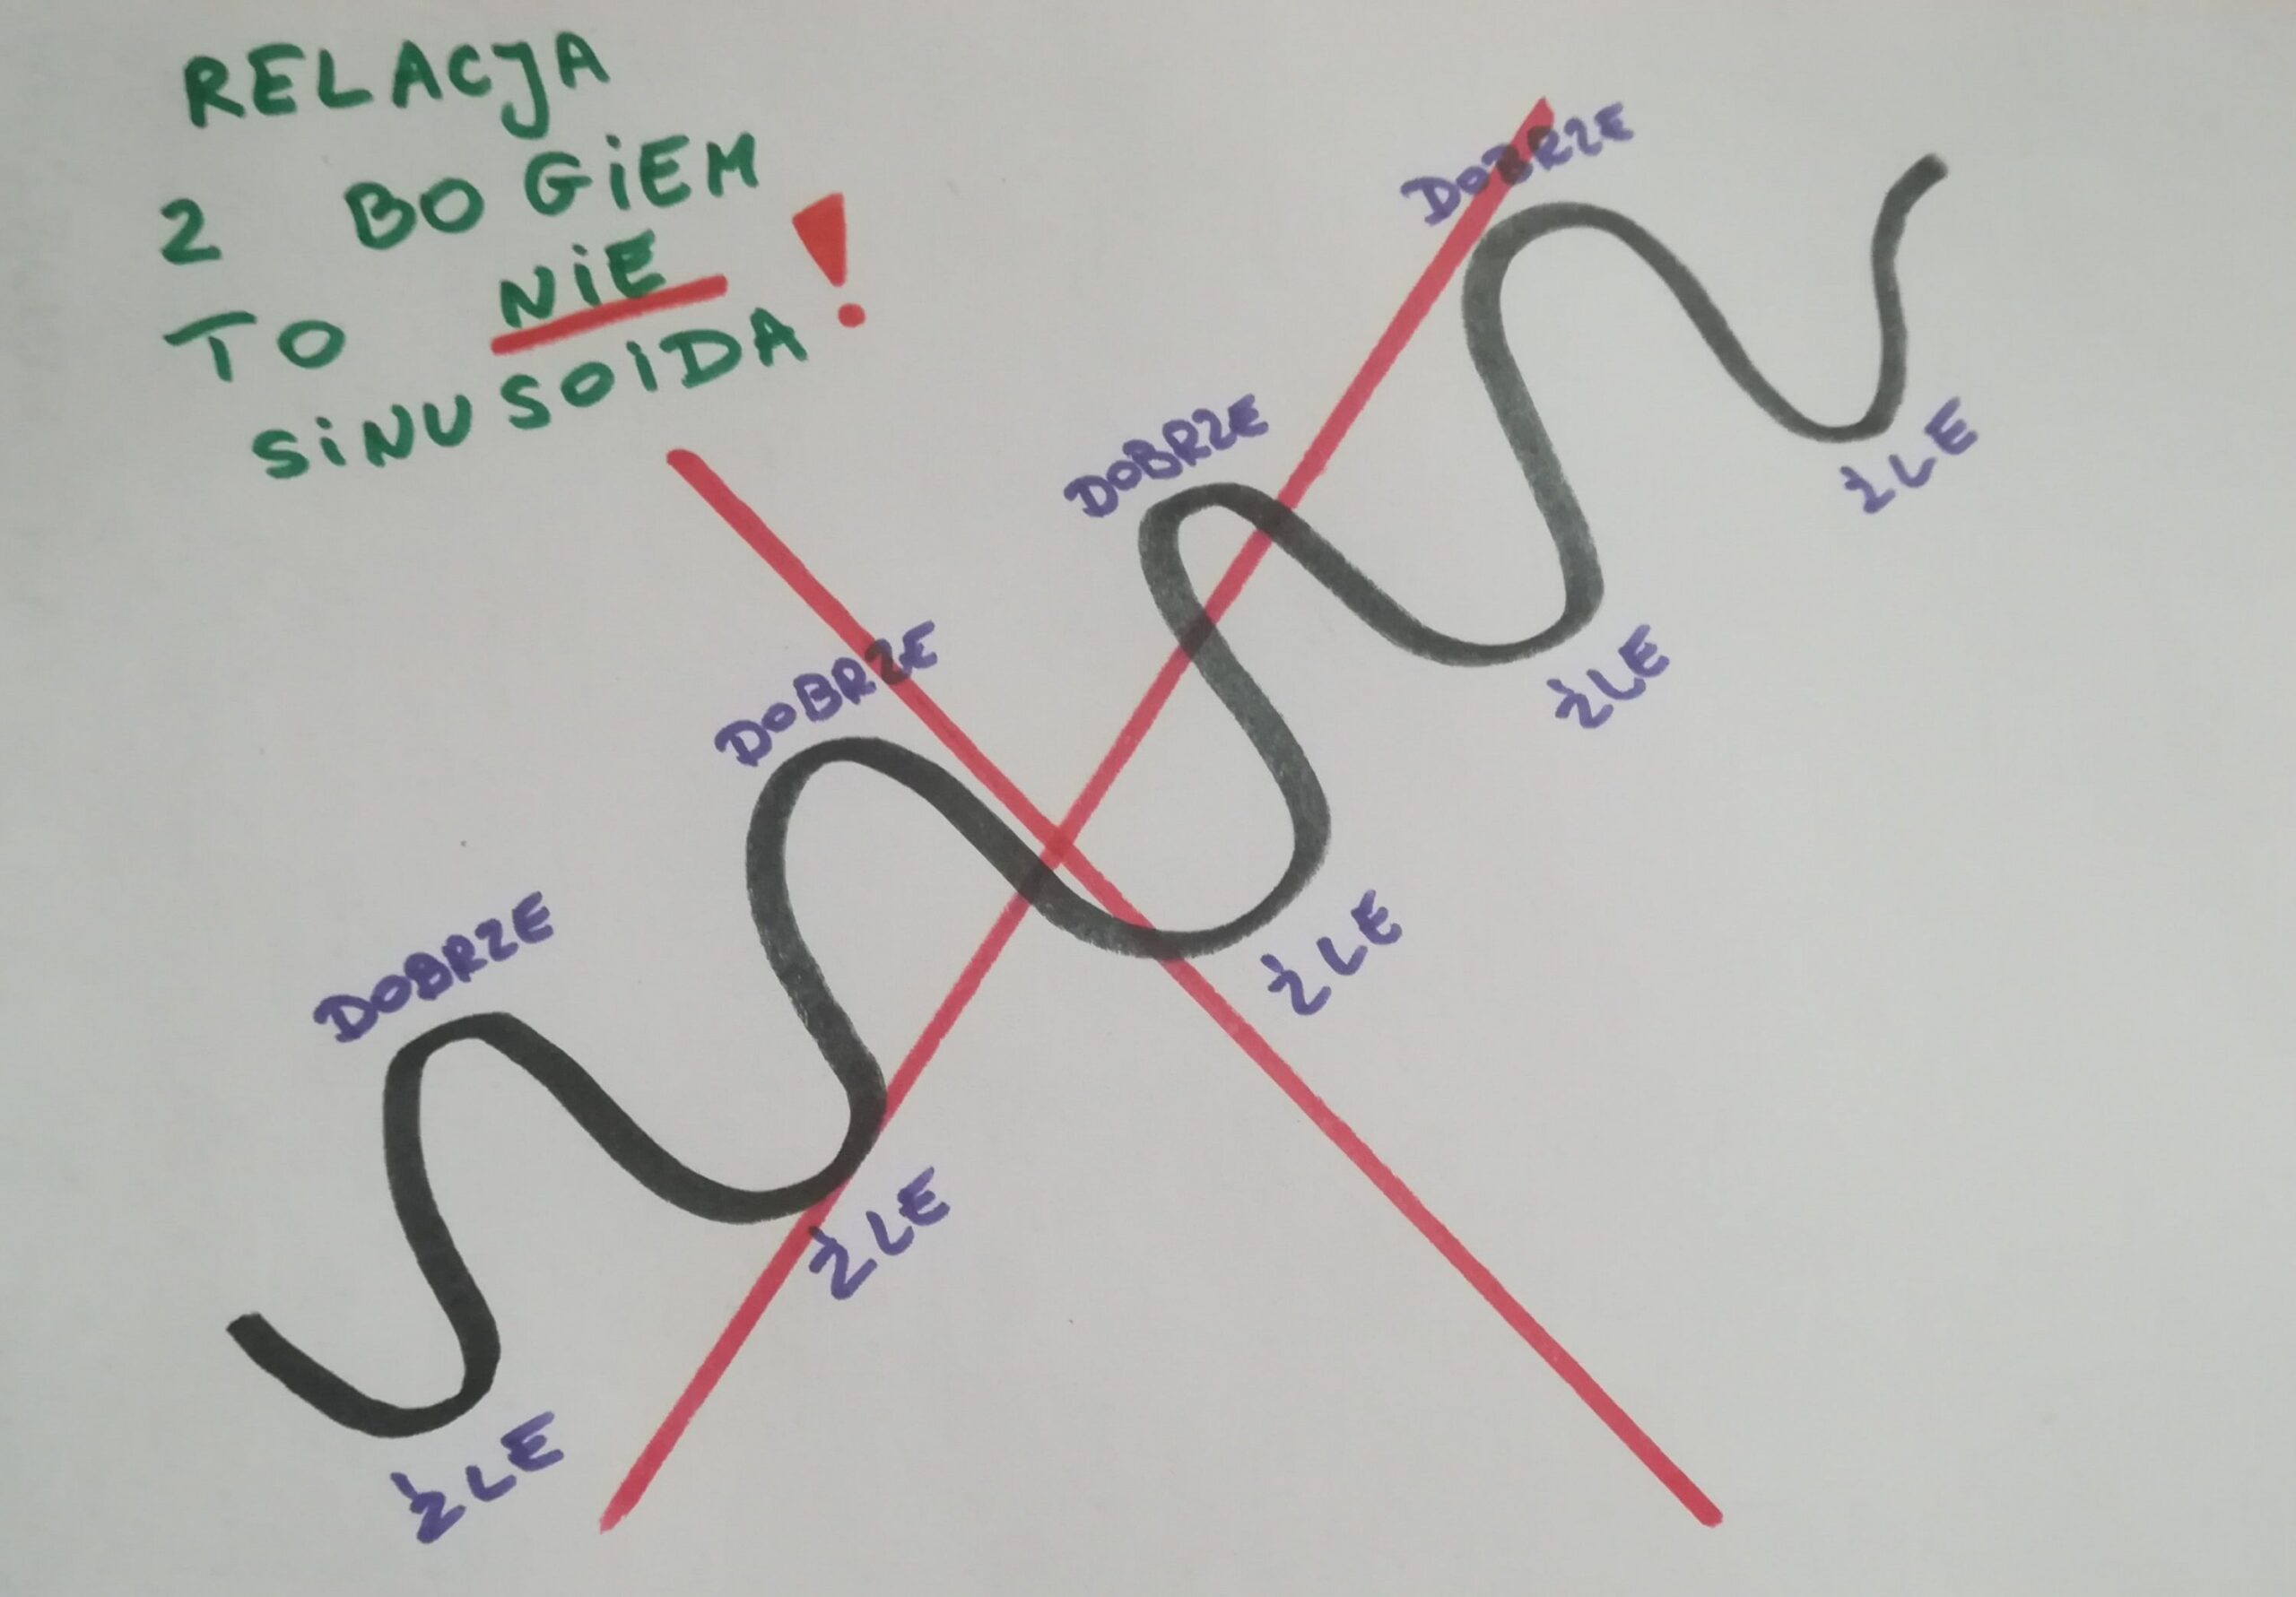 RELACJA
Z BOGIEM
TO NIE
SINUSOIDA!
DOBRZE
DOBRZE
DOBRZE
DOBRZE
ŹLE
ŹLE
ŹLE
ŹLE
ŹLE